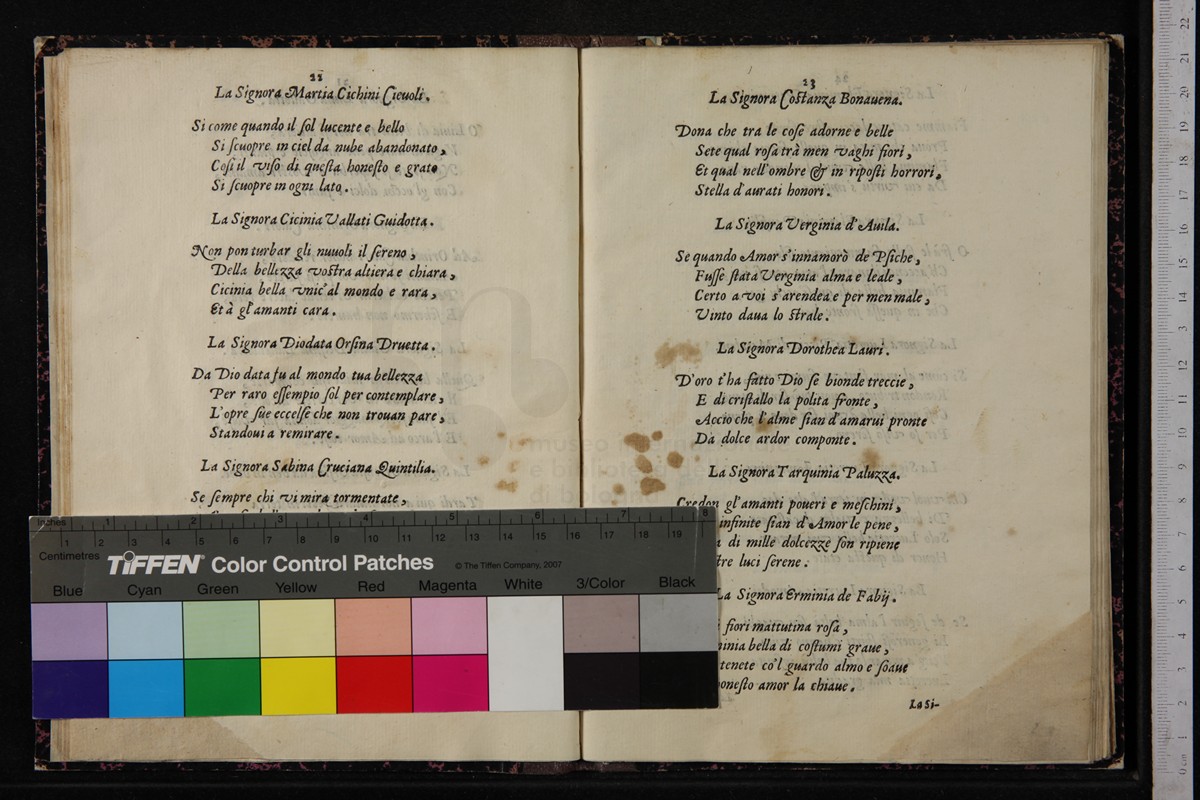 22
La Signora Martia Cichini Cieuoli.
Si come quando il sol lucente e bello
Si scuopre in ciel da nube abandonato,
Cosi il viso di questa honesto e grato
Si scuopre in ogni lato.
La Signora Cicinia Vallati Guidotta.
Non pon turbar gli nuuoli il sereno,
Della bellezza vostra altiera e chiara,
Cicinia bella vnic'al mondo e rara,
Et à gl'amanti cara.
La Signora Diodata Orsina Druetta.
Da Dio data fu al mondo tua bellezza
Per raro essempio sol per contemplare,
L'opre sue eccelse che non trouan pare,
Standoui a remirare.
La Signora Sabina Cruciana Quintilia.
Se sempre chi vi mira tormentate,
23
La Signora Costanza Bonauena.
Dona che tra le cose adorne e belle
Sete qual rosa trà men vaghi fiori,
Et qual nell'ombre & in riposti horrori,
Stella d'aurati honori.
La Signora Verginia d'Auila.
Se quando Amor s'innamorò de Psiche,
Fusse stata Verginia alma e leale,
Certo a voi s'arendea e per men male,
Vinto daua lo strale.
La Signora Dorothea Lauri.
D'oro t'ha fatto Dio se bionde treccie,
E di cristallo la polita fronte,
Accio che l'alme sian d'amarui pronte
Da dolce ardor componte.
La Signora Tarquinia Paluzza.
Credon gl'amanti poueri e meschini,
infinite sian d'Amor le pene,
di mille dolcezze son ripiene
tre luci serene.
La Signora Erminia de Fabij.
fiori mattutina rosa,
inia bella di costumi graue,
tenete co'l guardo almo e soaue
onesto amor la chiaue.
La Si-
Inches 1 2 3 4 5 6 7 8
1 2 3 4 5 6 7 8 9 10 11 12 13 14 15 16 17 18 19
Centimetres
TIFFEN® Color Control Patches
© The Tiffen Company, 2007
Blue Cyan Green Yellow Red Magenta White 3/Color Black
museo
e biblioteca
di bologna
0 cm 1 2 3 4 5 6 7 8 9 10 11 12 13 14 15 16 17 18 19 20 21 22